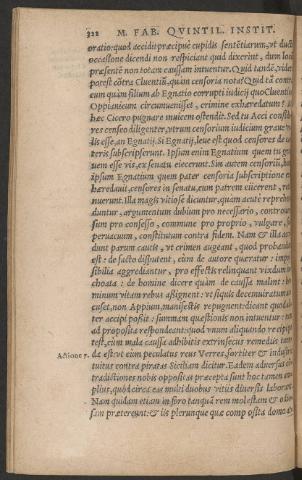 322 M. FAB. QVINTIL. INSTIT.
oratio: quod accidit præcipuè cupidis sententiarum, vt duct
occasione dicendi non respiciant quid dixerint, dum loc
præsentē non totam caussam intuentur. Quid tandē videt
potest cōtra Cluentiū, quàm censoria nota? Quid tā cont
eum quàm filium ab Egnatio corrupti iudicij quo Cluentiu
Oppianicum circumuenisset, crimine exhæredatum? a
hec Cicero pugnare inuicem ostendit. Sed tu Acci consid
res censeo diligenter, vtrum censorium iudicium graue
dis esse, an Egnatij. Si Egnatij, leue est quod censores de
teris subscripserunt. Ipsum enim Egnatium quem tu gr
uem esse vis, ex senatu eiecerunt. Sin autem censoriū, h
ipsum Egnatium quem pater censoria subscriptione e
hæredauit, censores in senatu, eum patrem eiicerent, re
nuerunt. Illa magis vitiosè dicuntur, quàm acutè repreh
duntur, argumentum dubium pro necessario, controu
sum pro confesso, commune pro proprio, vulgare,
peruacuum, constitutum contra fidem. Nam & illa acc
dunt parum cautis, vt crimen augeant, quod probandu
est: de facto disputent, cùm de autore quæratur: imp
sibilia aggrediantur, pro effectis relinquant vixdum in
choata: de homine dicere quàm de caussa malint: ho
minum vitia rebus assignent: vt siquis decemuiratum a
cuset, non Appium, manifestis repugnent: dicant quod a
ter accipi possit: summam quæstionis non intueantur: no
ad proposita respondeant: quod vnum aliquando recipi
test, cùm mala caussa adhibitis extrinsecus remediis tuen
Actione 7. da est: vt cùm peculatus reus Verres, fortiter & indust
tuitus contra piratas Siciliam dicitur. Eadem aduersus cō
tradictiones nobis oppositas præcepta sunt hoc tamen am
plius, quòd circa eas multi duobus vitiis diuersis laborant
Nam quidam etiam in foro tanquā rem molestam & odi
sam prætereunt: & iis plerunque quæ composita domo at